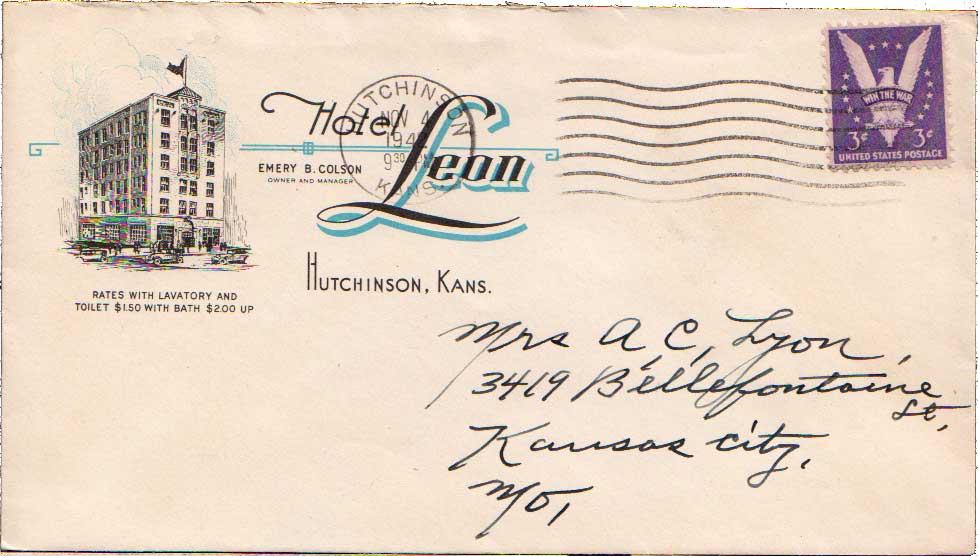 Hotel Leon
EMERY B. COLSON
OWNER AND MANAGER
HUTCHINSON, KANS.
RATES WITH LAVATORY AND
TOILET $1.50 WITH BATH $2.00 UP
HUTCHINSON
NOV 4
1942
9 30
KANS.
WIN THE WAR
3¢ 3¢
UNITED STATES POSTAGE
Mrs A. C. Lyon,
3419 Bellefontaine
St,
Kansas City,
Mo,